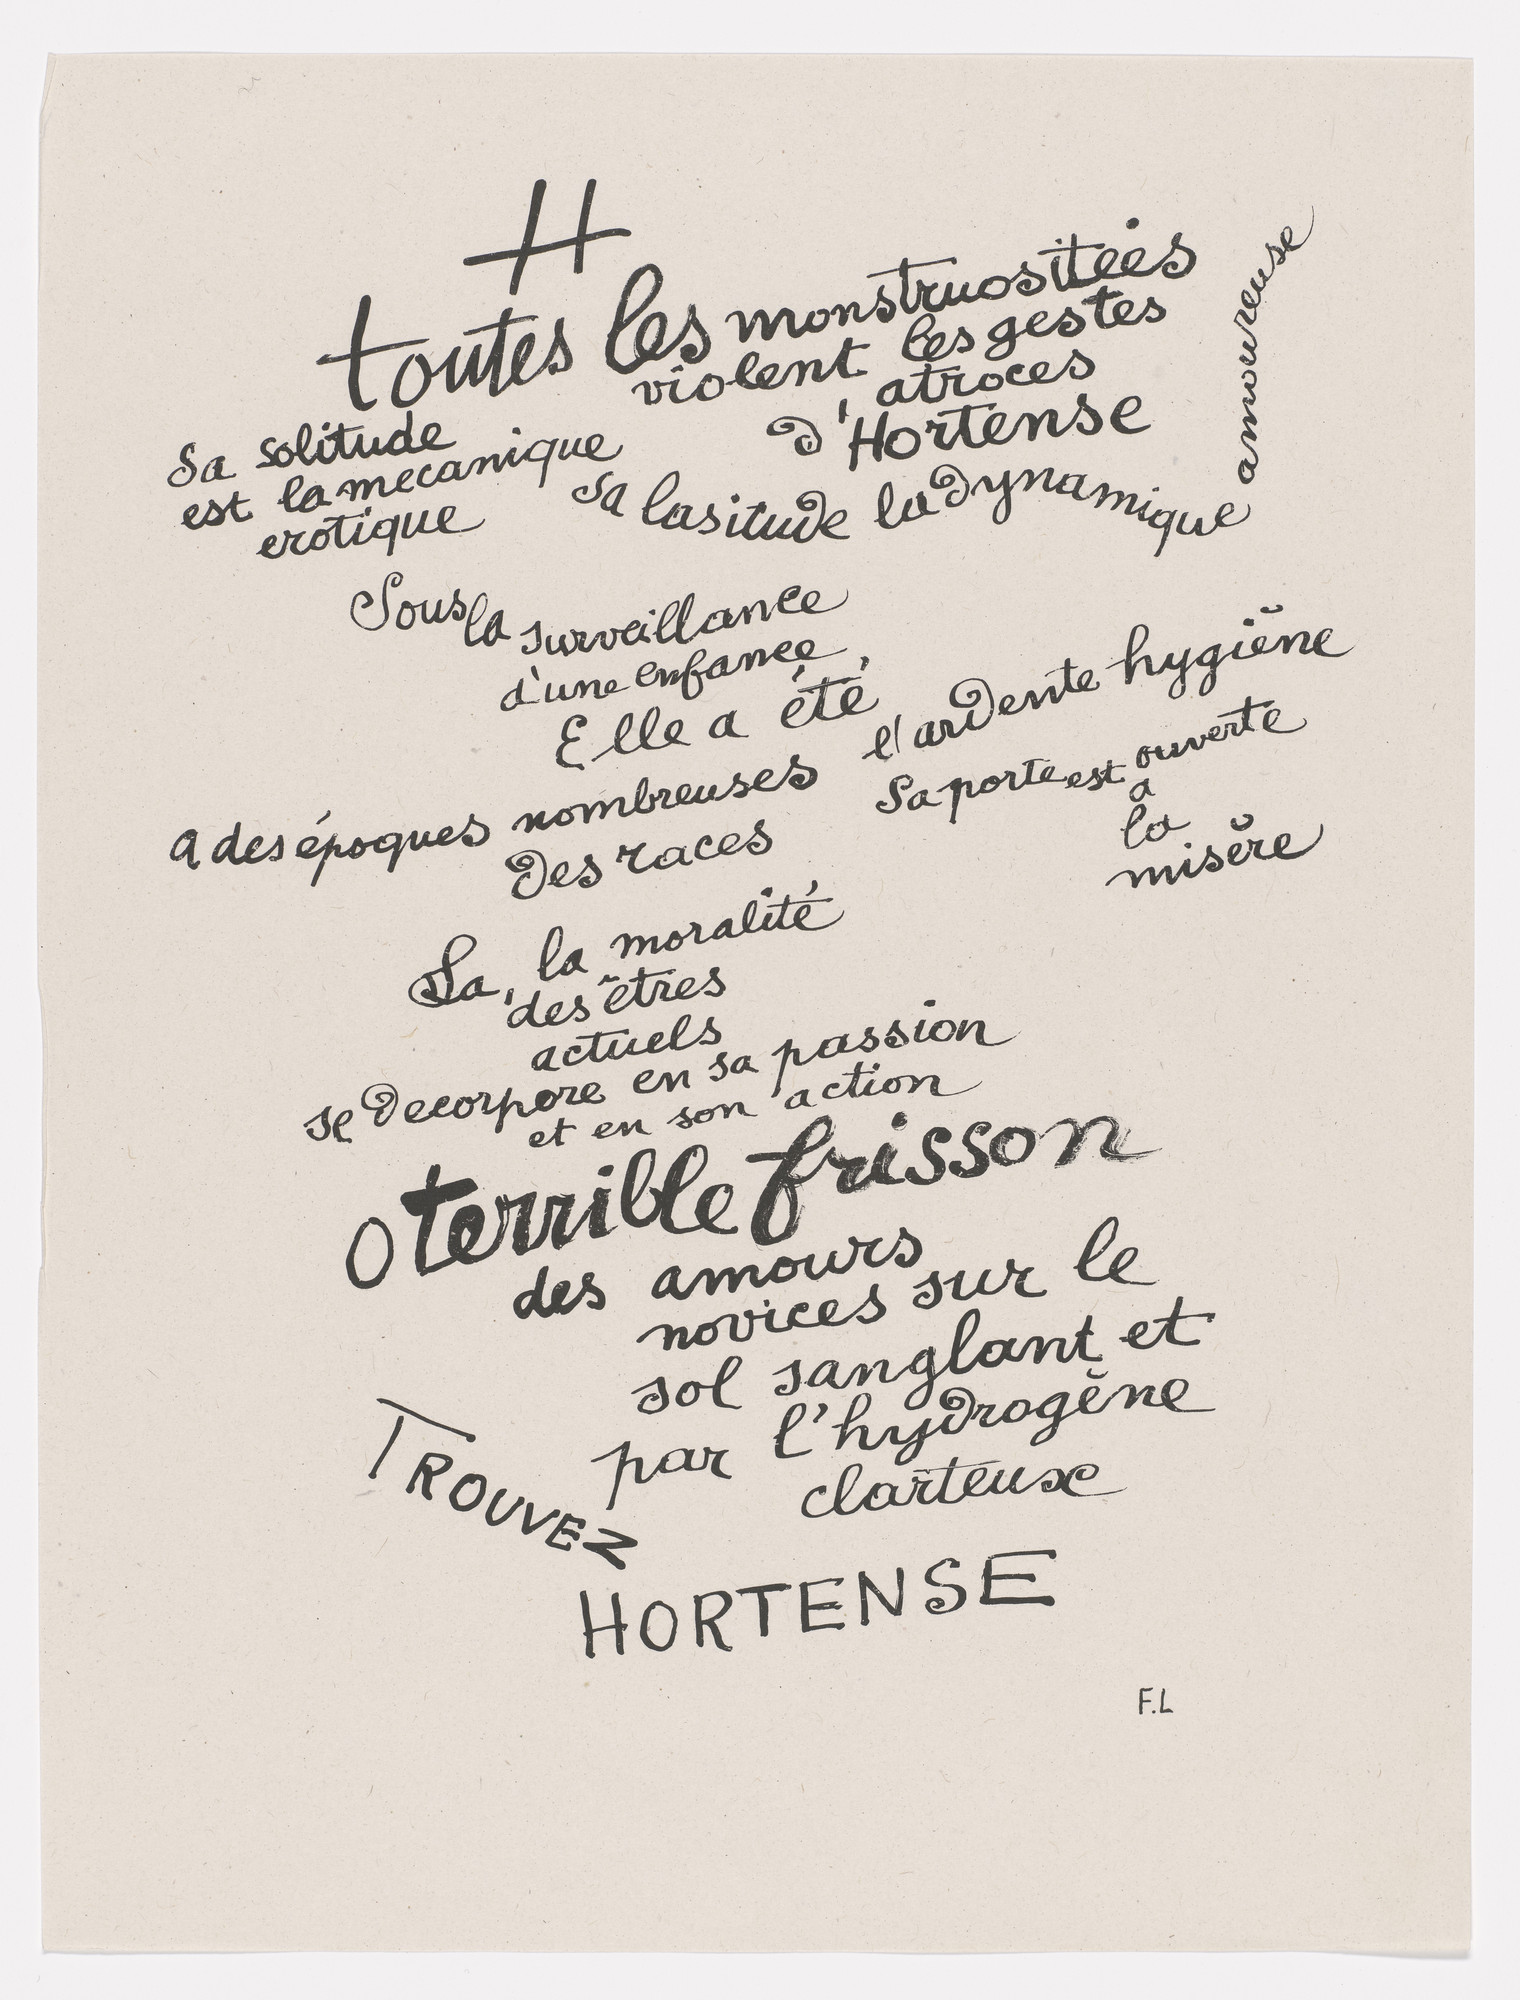 H
toutes les monstruositées
violent les gestes
atroces
d'Hortense
Sa solitude
est la mecanique
erotique
sa lasitude la dynamique
amoureuse
Sous la surveillance
d'une enfance
Elle a été,
a des époques nombreuses
l'ardente hygiène
des races
Sa porte est ouverte
a
la
misère
La, la moralité
des êtres
actuels
se decorpore en sa passion
et en son action
O terrible frisson
des amours
novices sur le
sol sanglant et
par l'hydrogène
clarteuse
TROUVEZ
HORTENSE
F.L